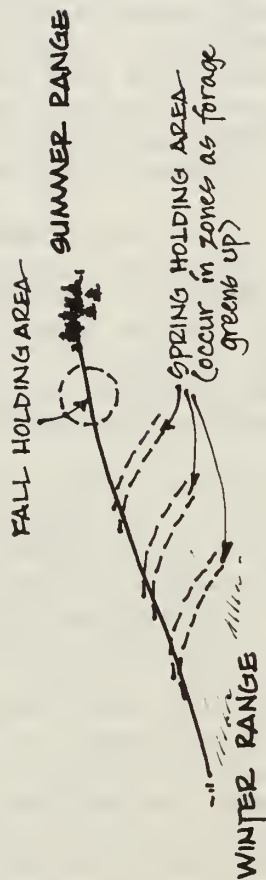 FALL HOLDING AREA
SUMMER RANGE
SPRING HOLDING AREA
(occur in zones as forage
greens up)
WINTER RANGE